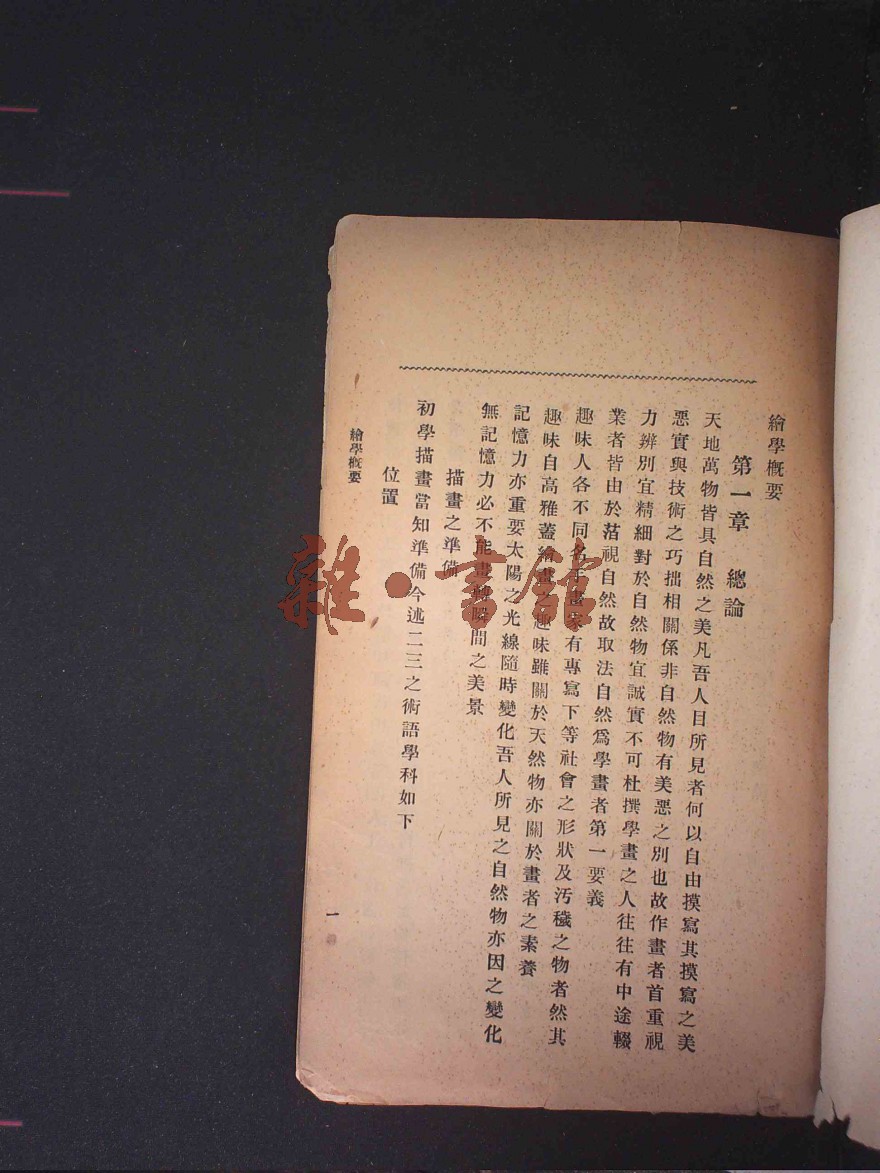 繪學概要
第一章 總論
天地萬物皆具自然之美凡吾人目所見者何以自由摸寫其摸寫之美
惡實與技術之巧拙相關係非自然物有美惡之別也故作畫者首重視
力辨別宜精細對於自然物宜誠實不可杜撰學畫之人往往有中途輟
業者皆由於落視自然故取法自然爲學畫者第一要義
趣味人各不同名手畫家有專寫下等社會之形狀及汚穢之物者然其
趣味自高雅蓋繪畫之趣味雖關於天然物亦關於畫者之素養
記憶力亦重要太陽之光線隨時變化吾人所見之自然物亦因之變化
無記憶力必不能畫轉瞬間之美景
描畫之準備
初學描畫當知準備今述二三之術語學科如下
位置
繪學概要
一
雜·書館